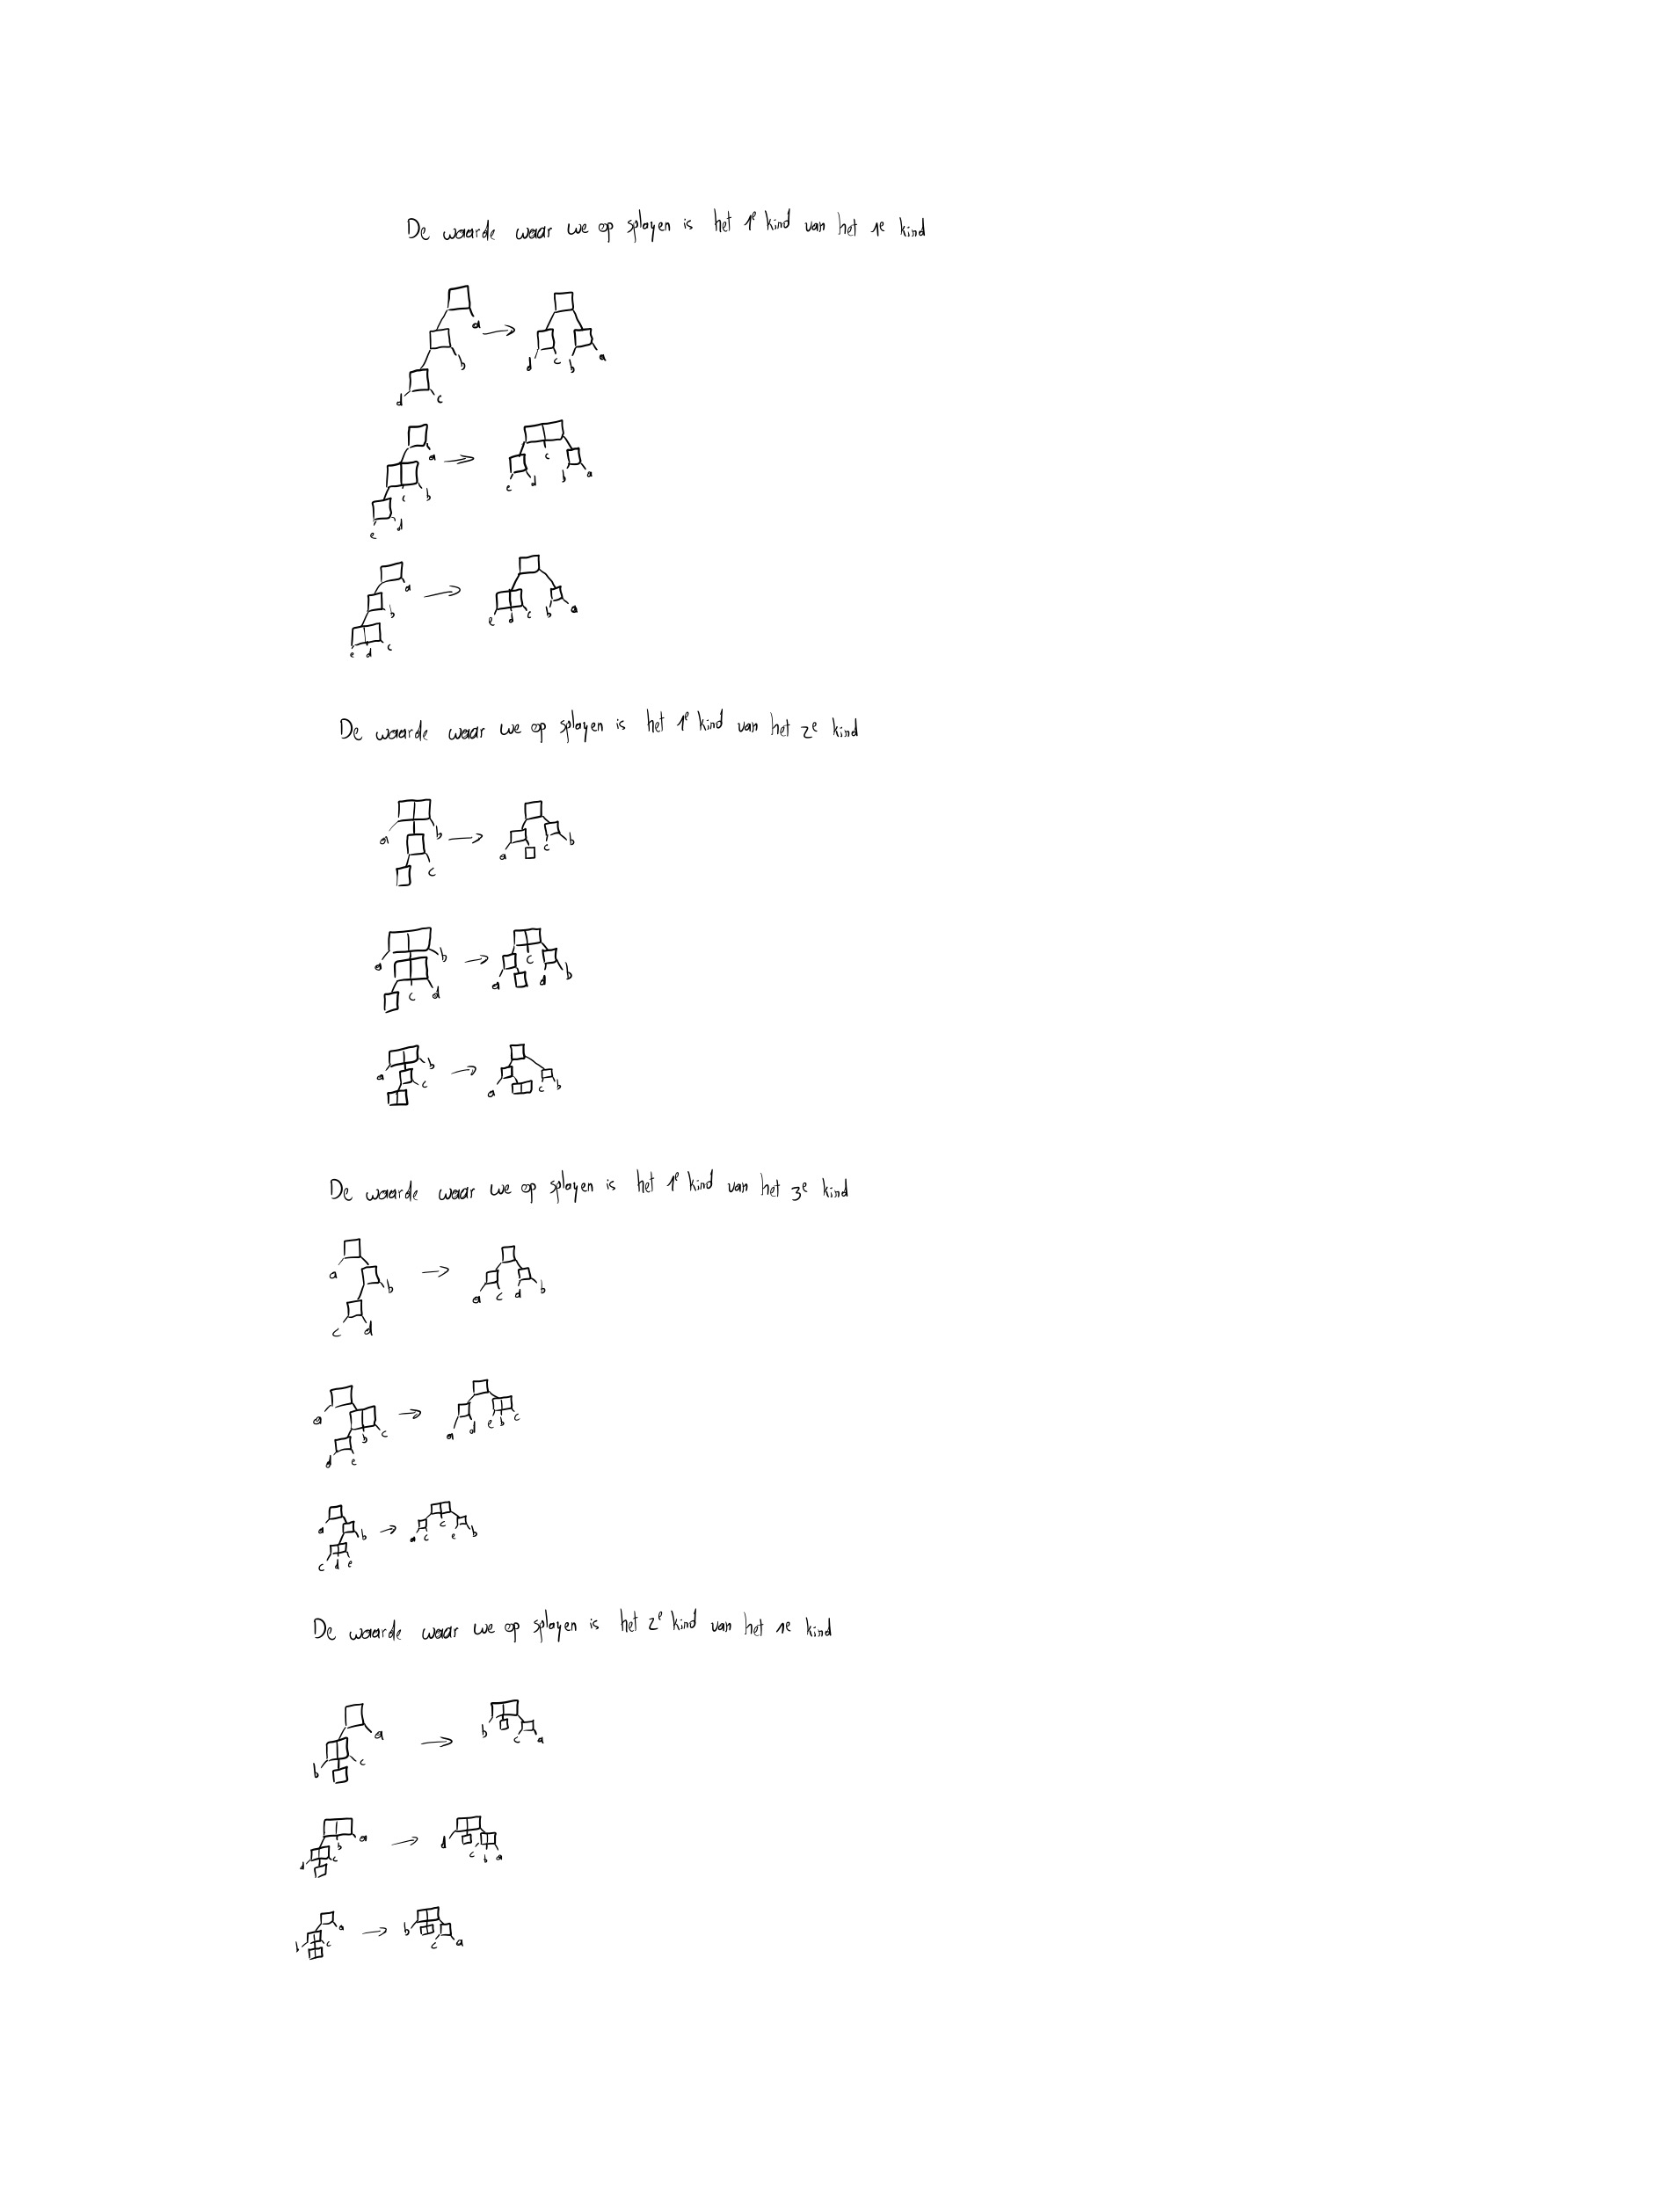 De waarde waar we op splayen is het 1e kind van het 1e kind
a
b
d c
d c b a
a
c b
e d
c
e d b a
a
b
e d c
e d c b a
De waarde waar we op splayen is het 1e kind van het 2e kind
a b
c
a c b
a b
c d
c
a d b
a b
c
a c b
De waarde waar we op splayen is het 1e kind van het 3e kind
a
b
c d
a c d b
a
b c
d e
a d e b c
a
b
c d e
c
a c e b
De waarde waar we op splayen is het 2e kind van het 1e kind
a
b c
b c a
b a
d c
d c b a
a
b c
b c a